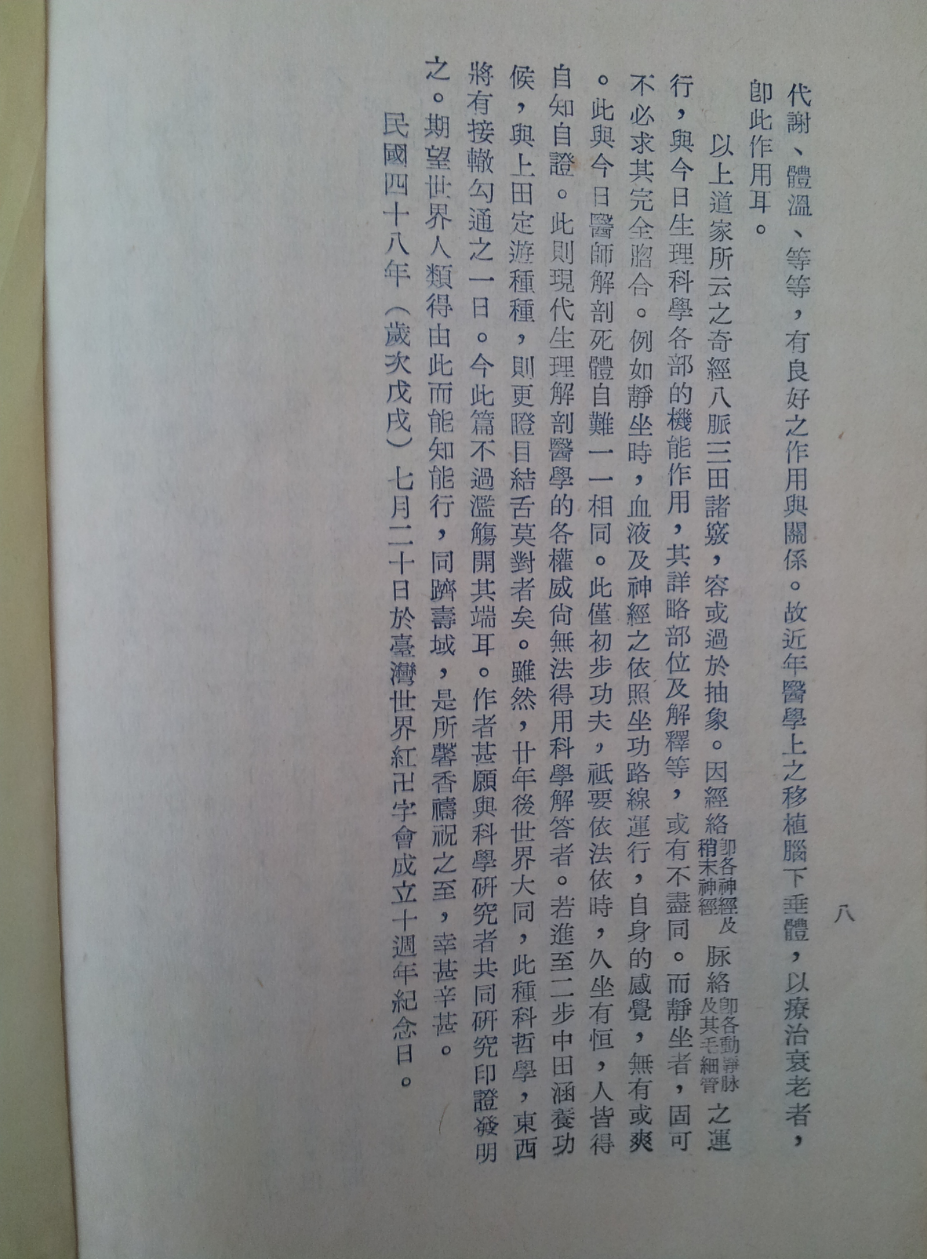 八
代謝、體溫、等等，有良好之作用與關係。故近年醫學上之移植腦下垂體，以療治衰老者，
卽此作用耳。
以上道家所云之奇經八脈三田諸竅，容或過於抽象。因經絡卽各神經及稍末神經脉絡卽各動靜脉及其毛細管之運
行，與今日生理科學各部的機能作用，其詳略部位及解釋等，或有不盡同。而靜坐者，固可
不必求其完全脗合。例如靜坐時，血液及神經之依照坐功路線運行，自身的感覺，無有或爽
。此與今日醫師解剖死體自難一一相同。此僅初步功夫，祇要依法依時，久坐有恒，人皆得
自知自證。此則現代生理解剖醫學的各權威尙無法得用科學解答者。若進至二步中田涵養功
候，與上田定遊種種，則更瞪目結舌莫對者矣。雖然，廿年後世界大同，此種科哲學，東西
將有接轍勾通之一日。今此篇不過濫觴開其端耳。作者甚願與科學硏究者共同硏究印證發明
之。期望世界人類得由此而能知能行，同躋壽域，是所馨香禱祝之至，幸甚辛甚。
民國四十八年（歲次戊戌）七月二十日於臺灣世界紅卍字會成立十週年紀念日。